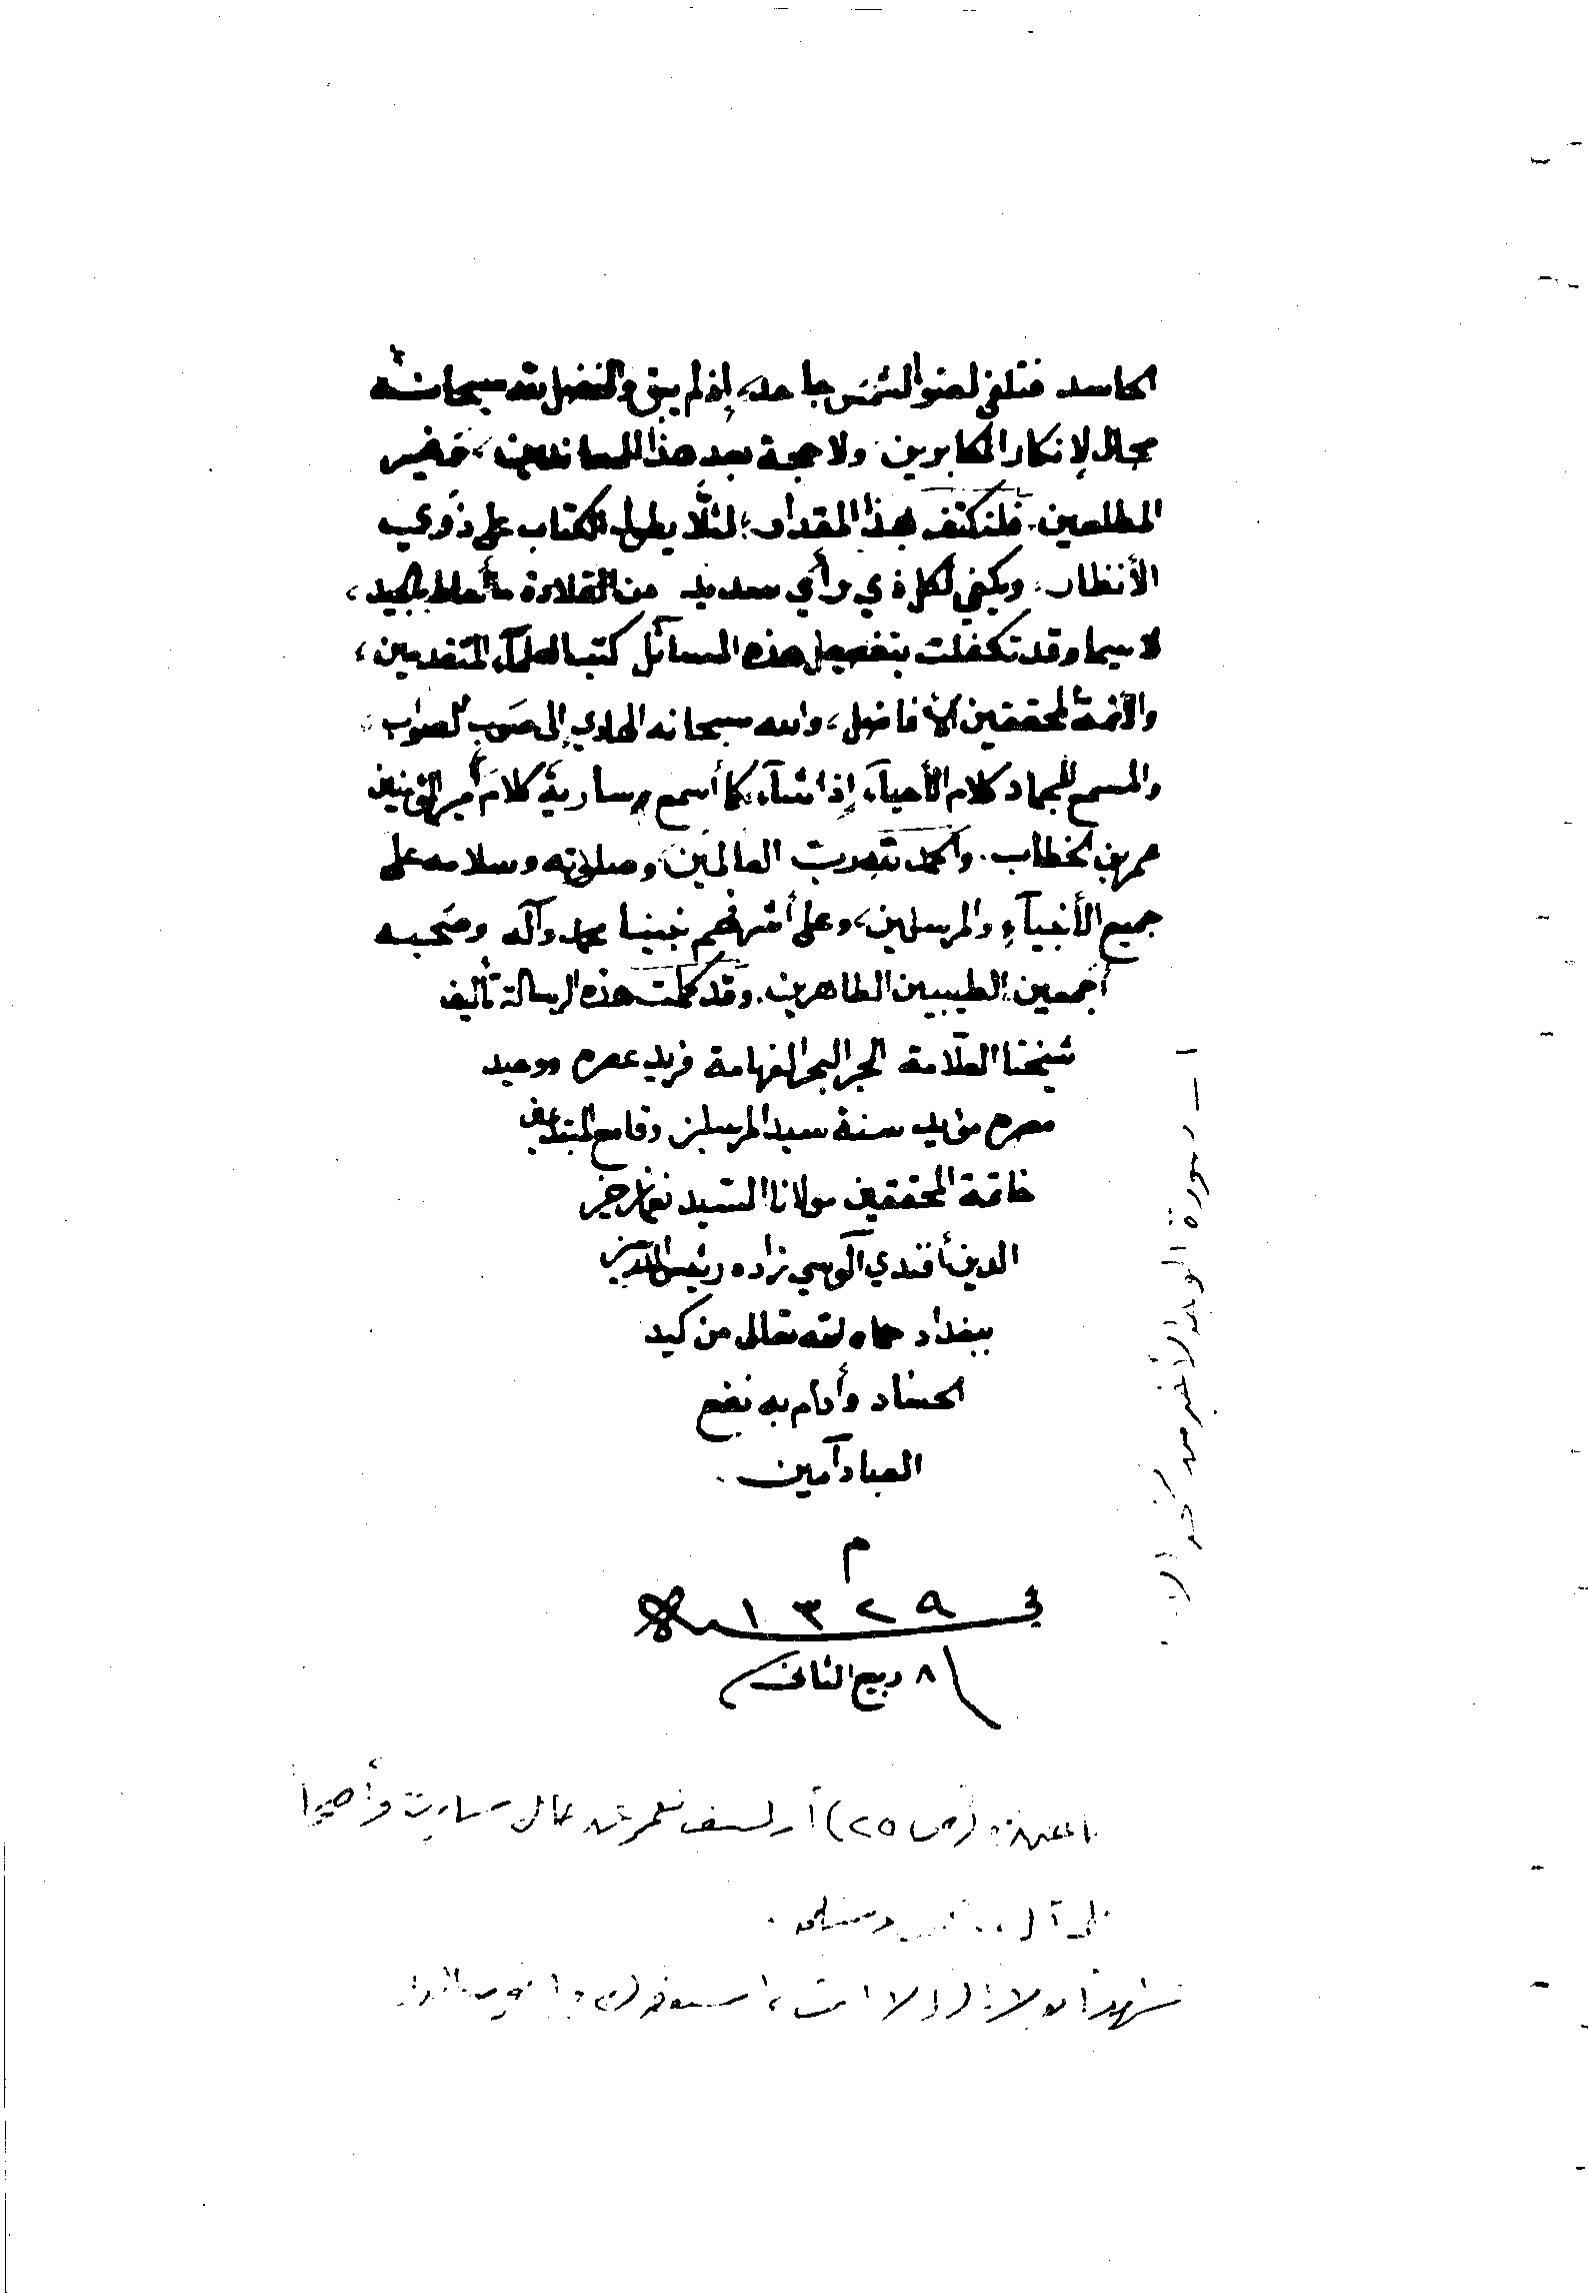 الحاسد فتلفى لضوء الشمس جاحد، إذ لم يبق والفضل لله سبحانه
مجال لإنكار المكابرين ولا حجة بعد هذا للمعاندين،
المطلعين. فلنكتف بهذا المقدار؛ لئلا يطول الكتاب على ذوي
الأنظار. ويكفي لكل ذي رأي سديد من القلادة ما أحاط بالجيد،
لا سيما وقد تكفلت بتفصيل هذه المسائل كتب العلماء المتقدمين،
والأئمة المحققين الأفاضل، والله سبحانه الهادي إلى صوب الصواب،
والمسمع للجماد كلام الأحياء إذا شاء، كما أسمع سارية كلامَ أمير المؤمنين
عمر بن الخطاب. والحمد لله رب العالمين وصلاته وسلامه على
جميع الأنبياءِ والمرسلين، وعلى أشرفهم نبينا محمد وآله وصَحبه
أجمعين الطيبين الطاهرين. وقد كملت هذه الرسالة تأليف
شيخنا العلّامة الحبر البحر الفهامة فريد عصره ووحيد
مصره مؤيد سنة سيد المرسلين وقامع المبتدعين
خاتمة المحققين مولانا السّيد نعمان خير
الدين أفندي آلوسي زاده رئيس المدرسين
ببغداد حماه الله تعالى من كيد
الحساد وأدام به نفع
العباد آمين.
م
في ١٣٢٩
٨ ربيع الثاني
صورة الوجه الأخير من
(ص ٢٥)
وسلم.